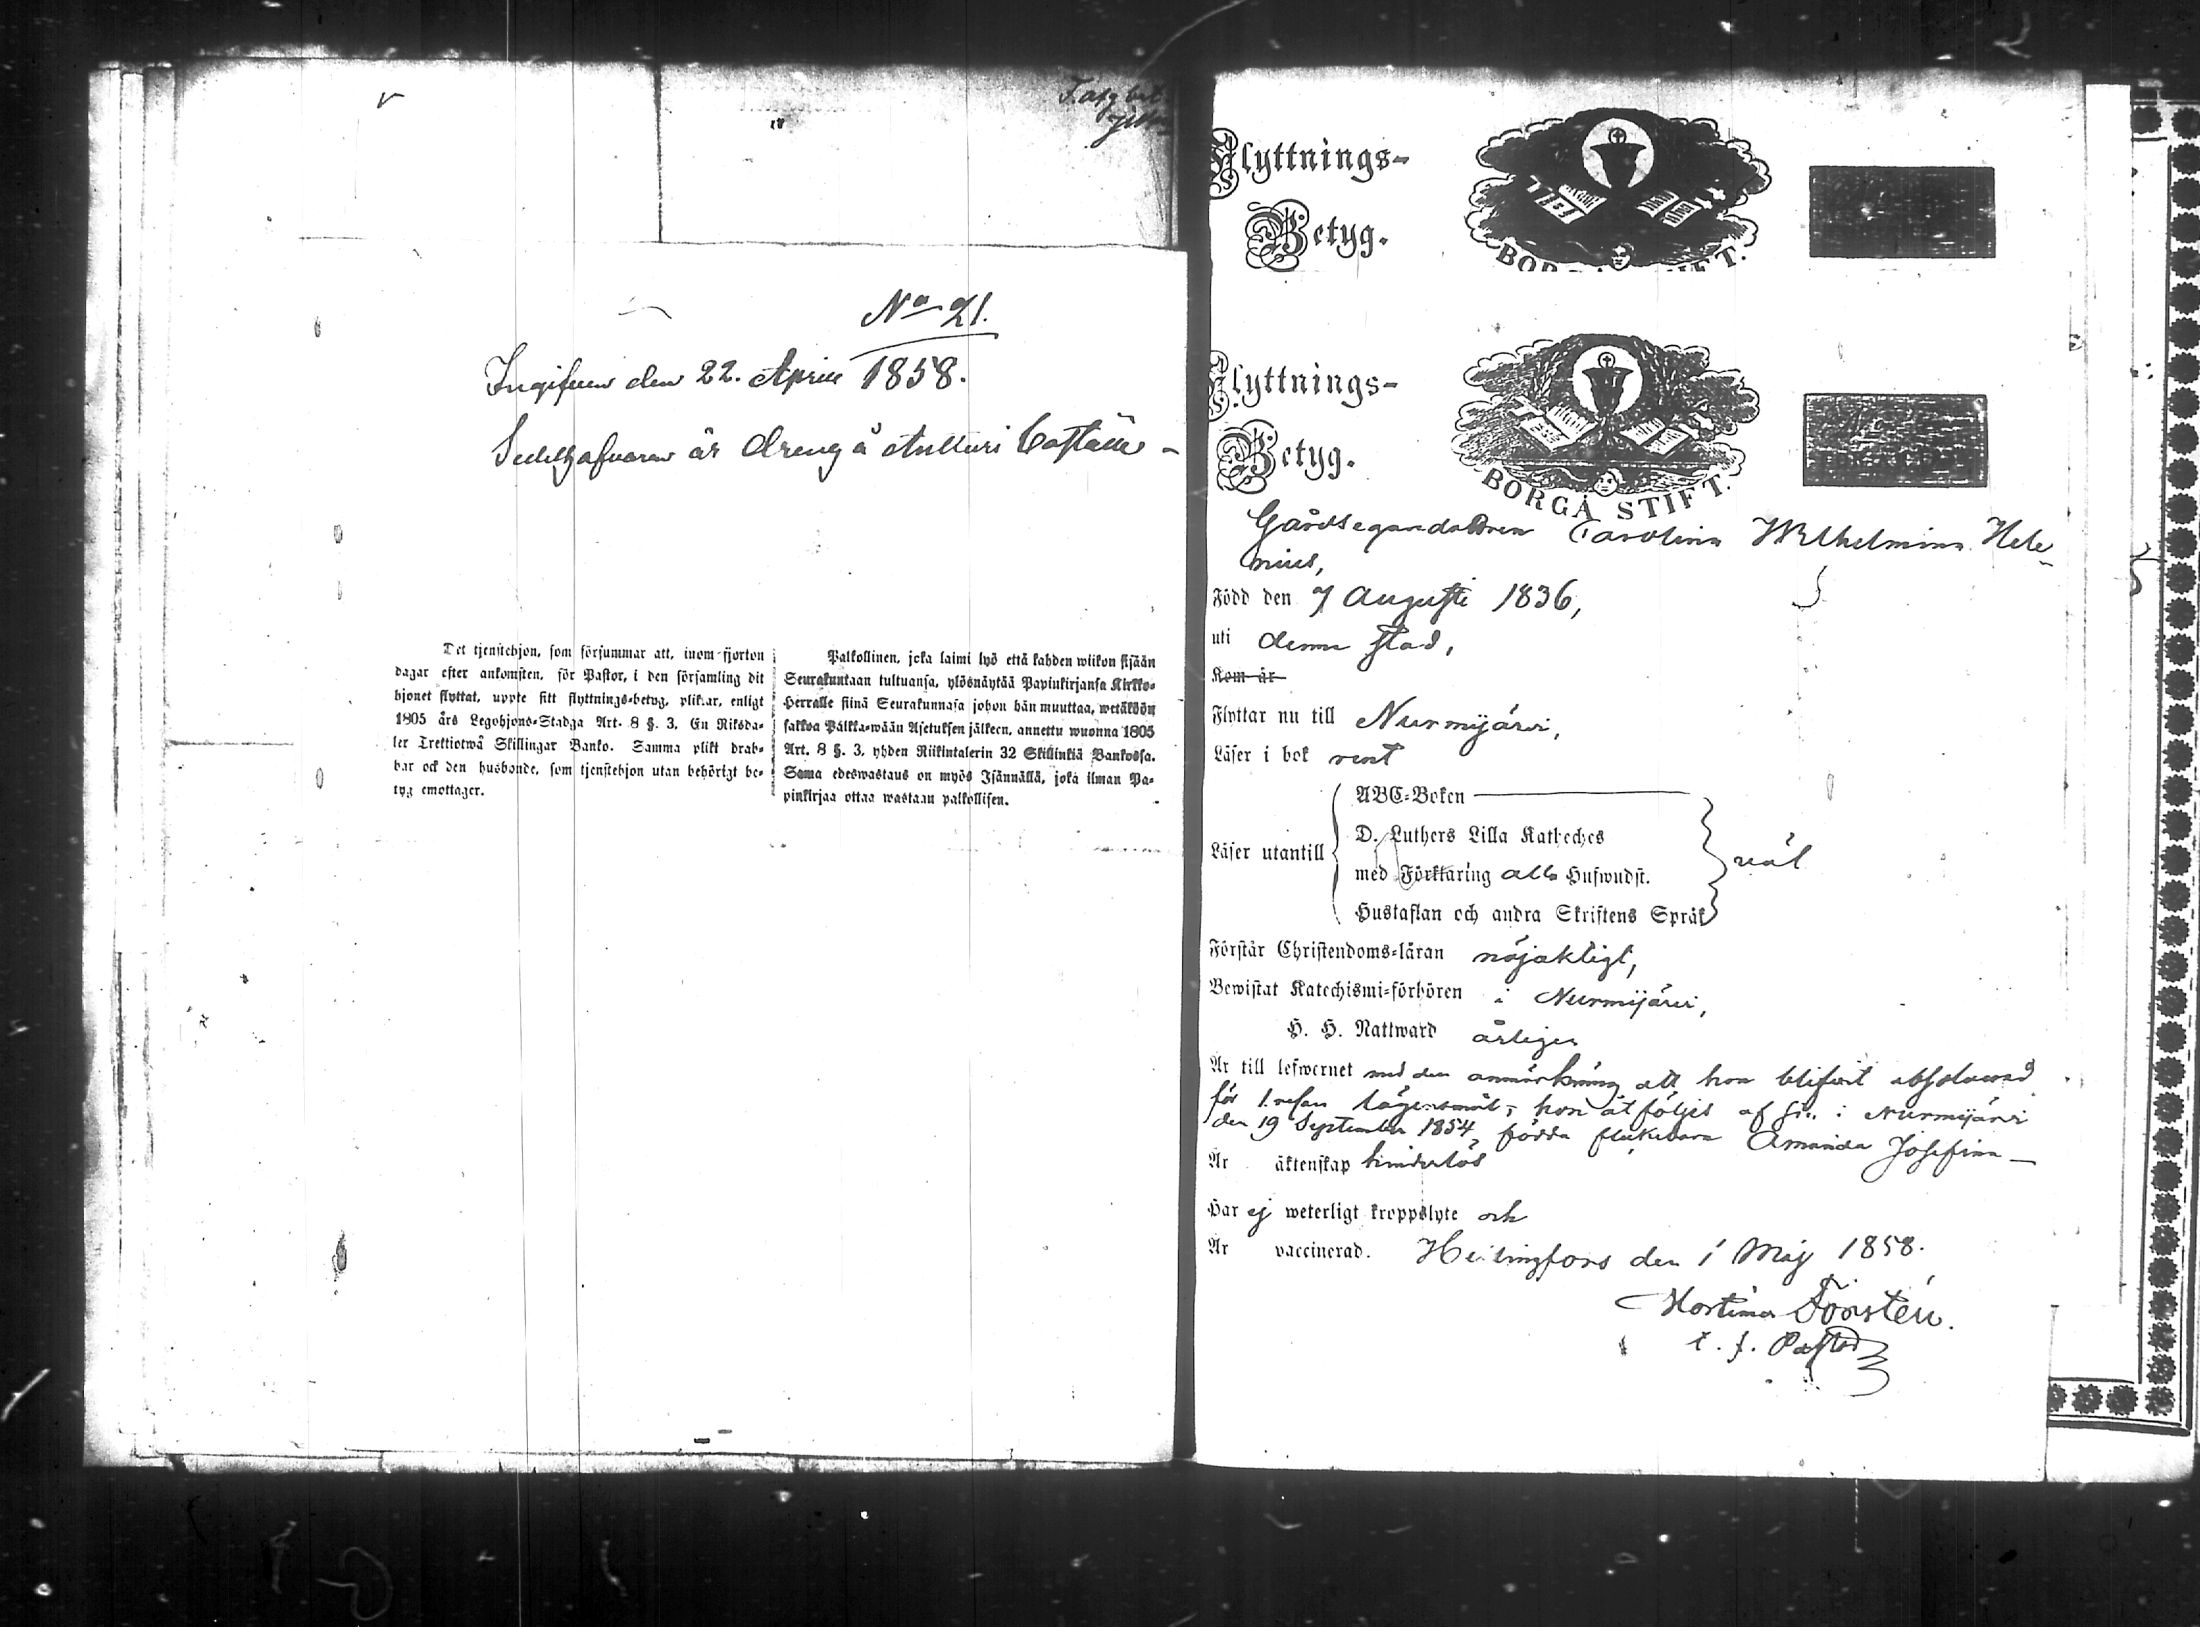 No 21.
Ingifven den 22. April 1858.
Sedelhafvaren är dreng å
Det tjenstehjon, som försummar att, inom fjorton
dagar efter ankomsten, för Pastor, i den församling dit
hjonet flyttat, uppte sitt flyttnings-betyg, pliktar, enligt
1805 års Legohjons-Stadga Art. 8 §. 3. En Riksda-
ler Trettiotwå Skillingar Banko. Samma plikt drab-
bar ock den husbonde, som tjenstehjon utan behörigt be-
tyg emottager.
Palkollinen, joka laimi lyö että kahden wiikon sisään
Seurakuntaan tultuansa, ylösnäytää Papinkirjansa Kirkko-
Herralle siinä Seurakunnasa johon hän muuttaa, wetäköön
sakkoa Palkka-wään Asetuksen jälkeen, annettu wuonna 1805
Art. 8 §. 3, yhden Riikintalerin 32 Skillinkiä Bankossa.
Sama edeswastaus on myös Isännällä, joka ilman Pa-
pinkirjaa ottaa wastaan palkollisen.
Flyttnings-
Betyg.
Flyttnings-
Betyg.
BORGÅ STIFT.
Carolina Wilhelmina Hele
nius,
Född den 7 Augusti 1836,
uti denna stad,
Kom år
Flyttar nu till Nurmijärvi,
Läser i bok rent
ABC-Boken
D. Luthers Lilla Katheches
Läser utantill
med Förklaring alla Hufwudst.
väl
Hustaflan och andra Skriftens Språk
Förstår Christendoms-läran nöjaktigt,
Bewistat Katechismi-förhören i Nurmijärvi,
H. H. Nattward årligen
Är till lefwernet med den anmärkning att hon blifvit absolverad
för 1. resan lägersmål, hon åtföljes af sin i Nurmijärvi
den 19 September 1854 födda flickebarn Amanda Josefina
Är äktenskap hinderlös
Har ej weterligt kroppslyte och
Är vaccinerad. Helsingfors den 1 Maj 1858.
Hortimer Forstén.
t. f. Pastor